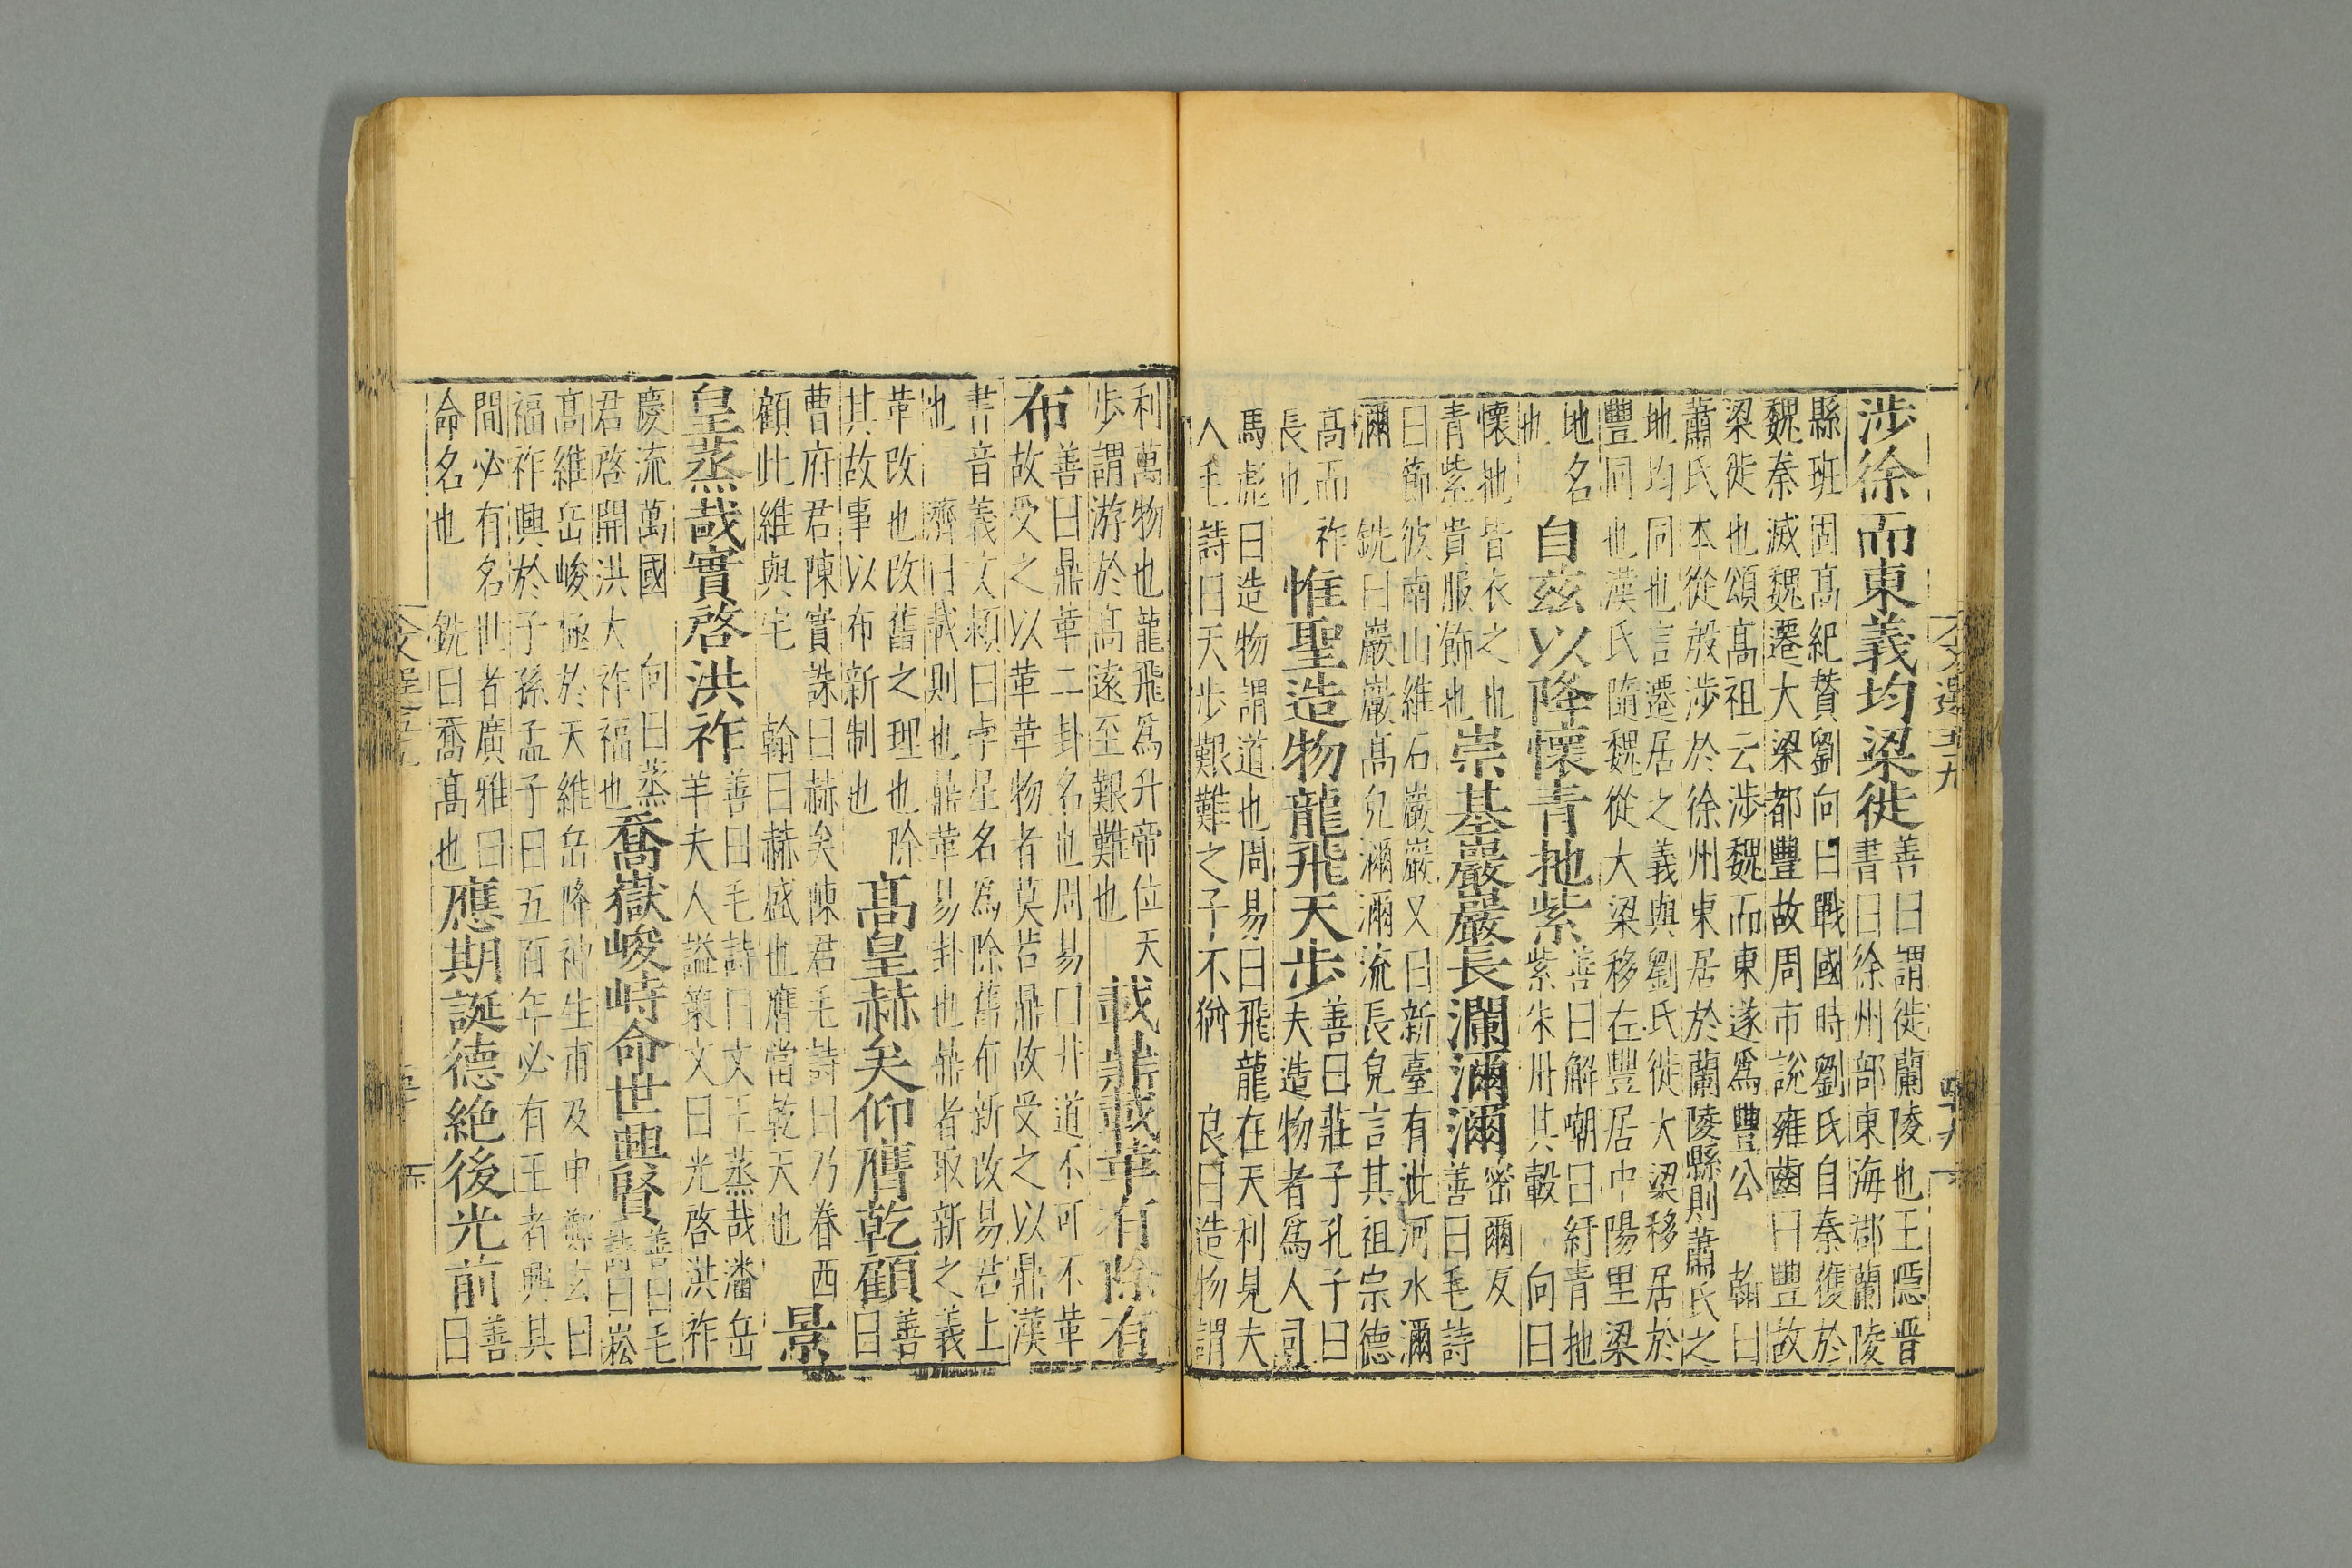 涉徐而東義均梁徙善曰謂徙蘭陵也王隱晋
書曰徐州部東海郡蘭陵
縣班固高紀賛劉向曰戰國時劉氏自秦獲於
魏秦滅魏遷大梁都豐故周市說雍齒曰豐故
梁徙也頌高祖云涉魏而東遂爲豐公 翰曰
蕭氏本從殷涉於徐州東居於蘭陵縣則蕭氏之
地均同也言遷居之義與劉氏徙大梁移居於
豐同也漢氏隨魏從大梁移在豐居中陽里梁
地名
也 自兹以降懷青拖紫善曰解嘲曰紆青拖
紫朱丹其轂 向曰
懷拖皆衣之也
青紫貴服飾也崇基巖巖長瀾瀰瀰密爾反
善曰毛詩
曰節彼南山維石巖巖又曰新臺有泚河水瀰
瀰 銑曰巖巖高皃瀰瀰流長皃言其祖宗德
高而祚
長也 惟聖造物龍飛天步善曰莊子孔子曰
夫造物者爲人司
馬彪曰造物謂道也周易曰飛龍在天利見大
人毛詩曰天步艱難之子不猶 良曰造物謂
利萬物也龍飛爲升帝位天
步謂游於高遠至艱難也 載鼎載革有除有
布善曰鼎革二卦名也周易曰井道不可不革
故受之以革革物者莫若鼎故受之以鼎漢
書音義文穎曰孛星名爲除舊布新改易君上
也 濟曰載則也鼎革易卦也鼎者取新之義
革改也改舊之理也除
其故事以布新制也 高皇赫矣仰膺乾顧善
曰
曹府君陳寔誄曰赫矣陳君毛詩曰乃眷西
顧此維與宅 翰曰赫盛也膺當乾天也 景
皇蒸哉實啓洪祚善曰毛詩曰文王蒸哉潘岳
羊夫人謚策文曰光啓洪祚
慶流萬國 向曰蒸
君啓開洪大祚福也喬嶽峻峙命世興賢善曰毛
詩曰崧
高維岳峻極於天維岳降神生甫及申鄭玄曰
福祚興於子孫孟子曰五百年必有王者興其
間必有名世者廣雅曰
命名也 銑曰喬高也 應期誕德絶後光前善
曰